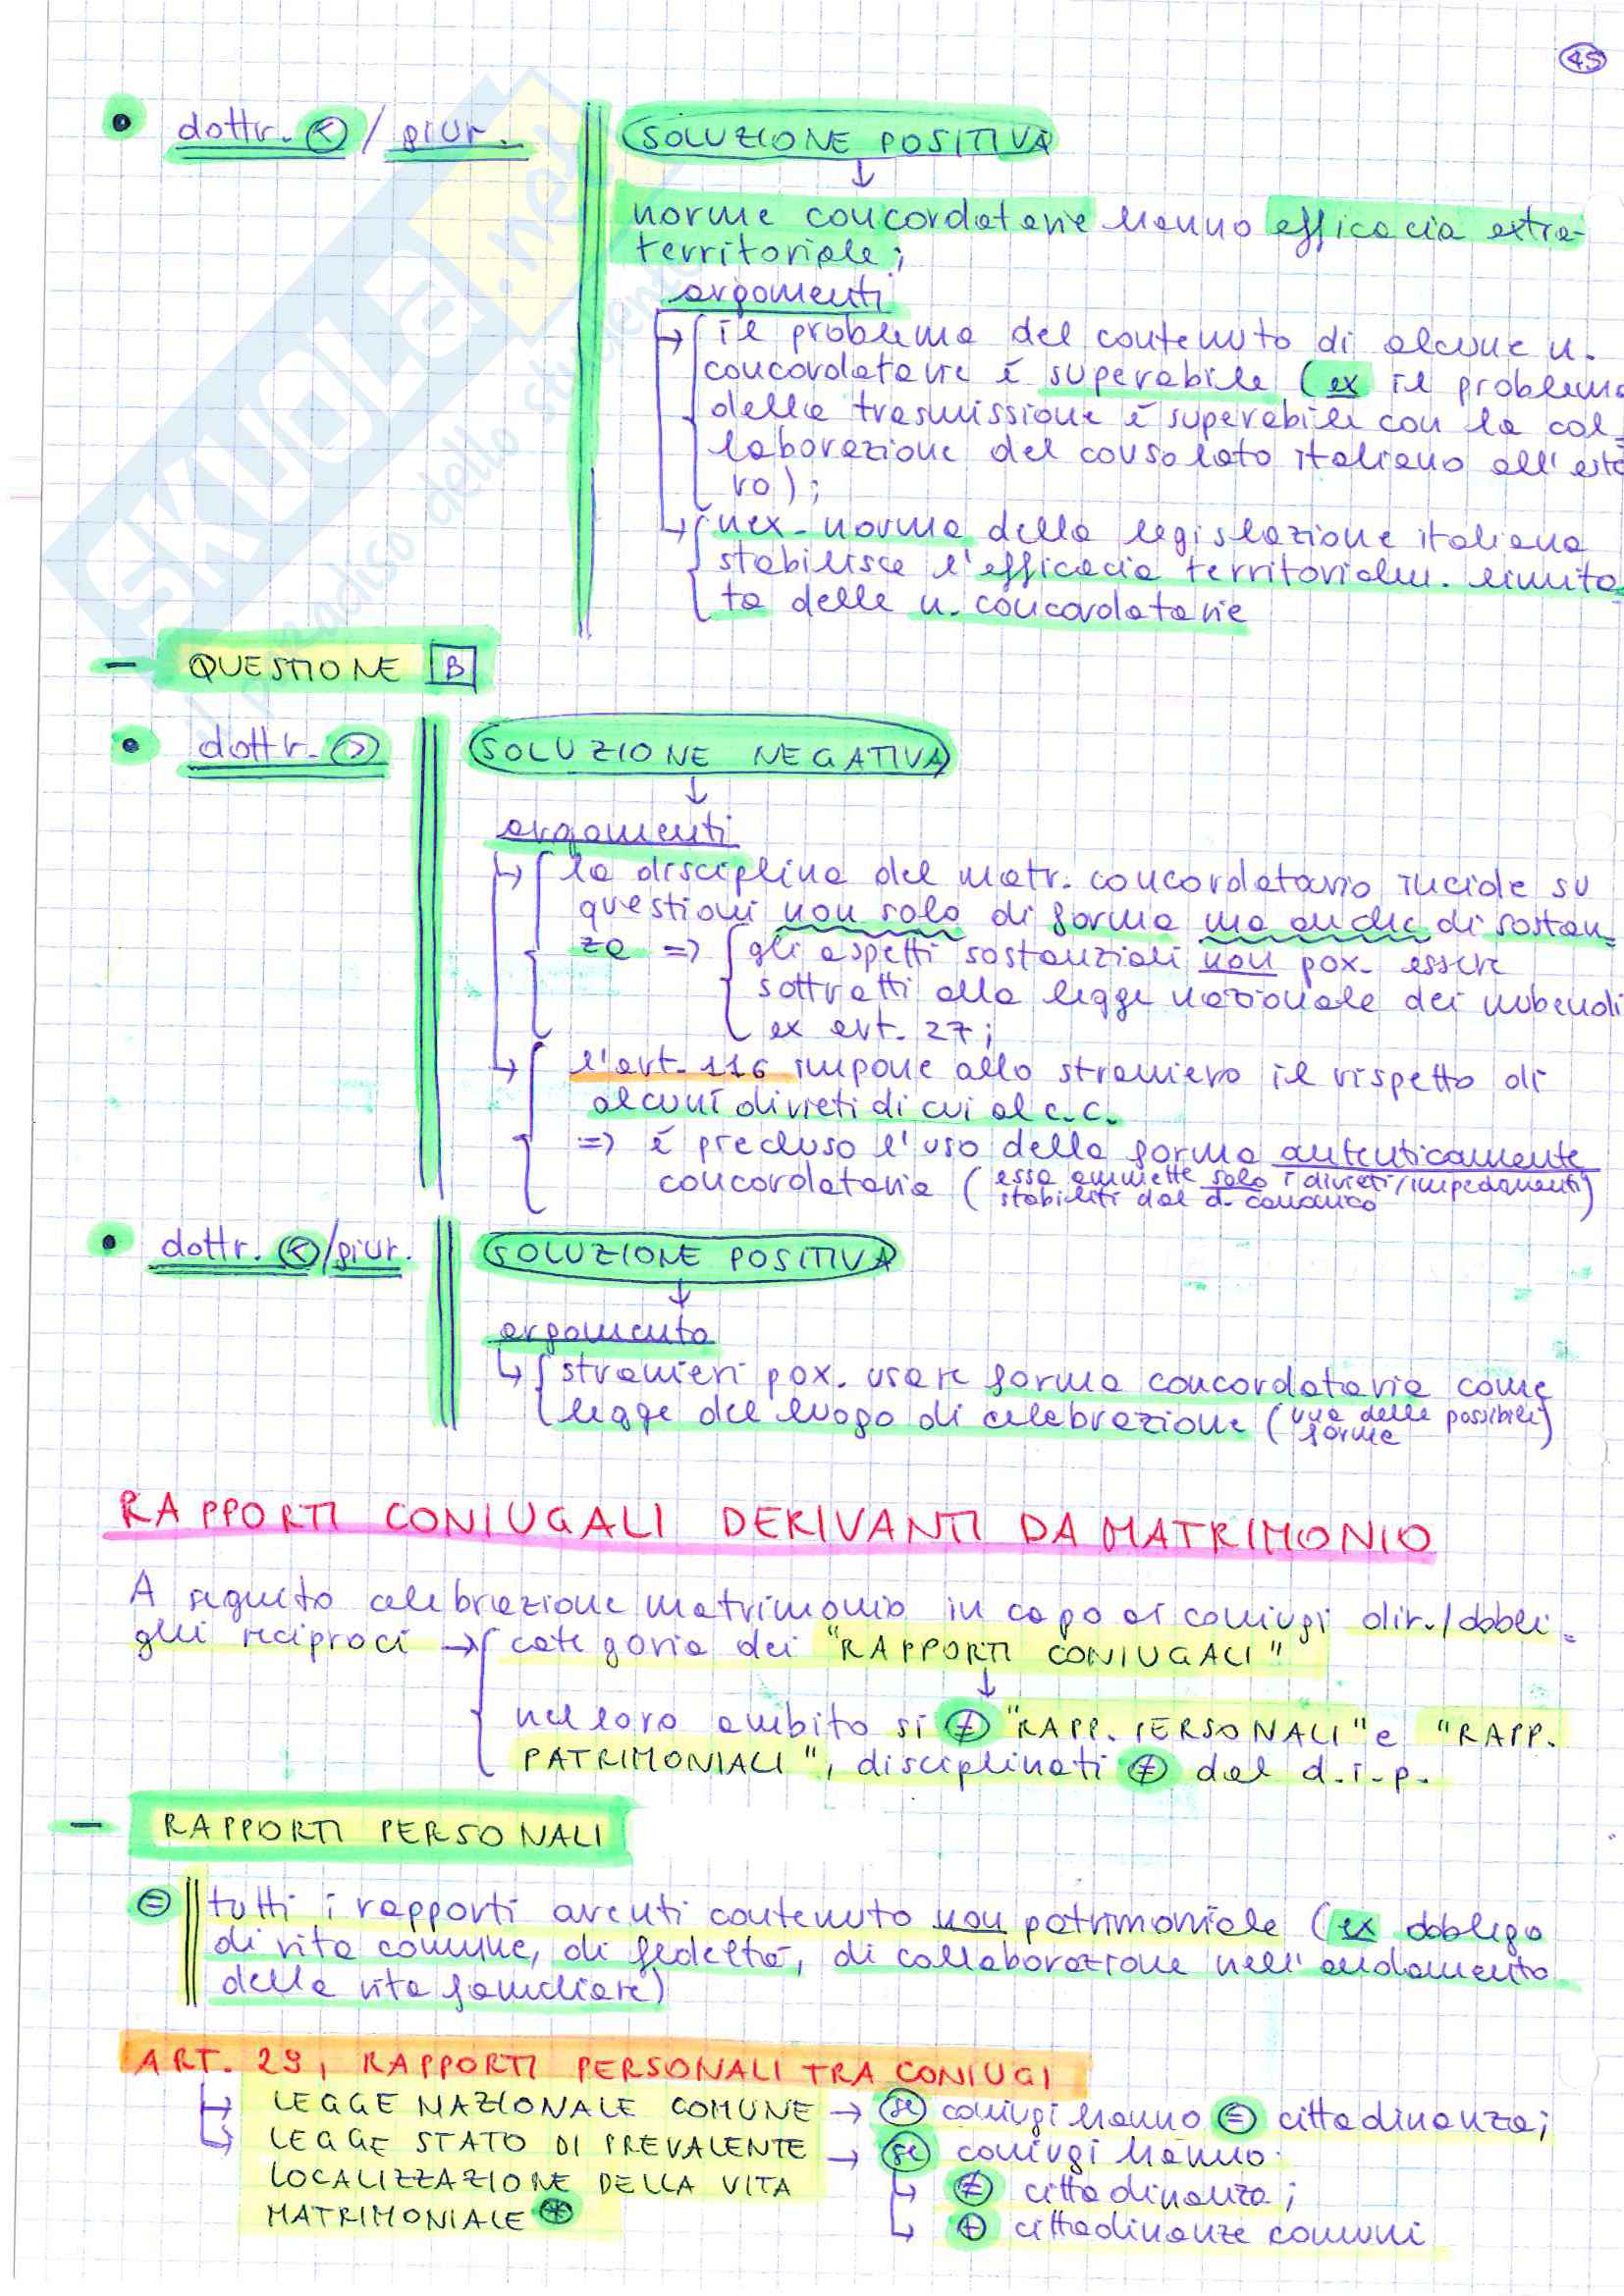 45
• dottr. < / giur.
SOLUZIONE POSITIVA
↓
norme concordatarie hanno efficacia extra-
territoriale;
argomenti
↳ il problema del contenuto di alcune n.
concordatarie è superabile (ex il problema
della trasmissione è superabile con la col-
laborazione del consolato italiano all'este
ro);
↳ nex. norma della legislazione italiana
stabilisce l'efficacia territorialm. limita-
ta delle n. concordatarie
– QUESTIONE B
• dottr. >
SOLUZIONE NEGATIVA
↓
argomenti
↳ la disciplina del matr. concordatario incide su
questioni non solo di forma ma anche di sostan-
za => gli aspetti sostanziali non pox. essere
sottratti alla legge nazionale dei nubendi
ex art. 27;
↳ l'art. 116 impone allo straniero il rispetto di
alcuni divieti di cui al c.c.
=> è precluso l'uso della forma autenticamente
concordataria (essa ammette solo i divieti/impedimenti
stabiliti dal d. canonico)
• dottr. < / giur.
SOLUZIONE POSITIVA
↓
argomento
↳ stranieri pox. usare forma concordataria come
legge del luogo di celebrazione (una delle possibili
forme)
RAPPORTI CONIUGALI DERIVANTI DA MATRIMONIO
A seguito celebrazione matrimonio in capo ai coniugi dir./obbli-
ghi reciproci → categoria dei "RAPPORTI CONIUGALI"
↓
nel loro ambito si ≠ "RAPP. PERSONALI" e "RAPP.
PATRIMONIALI", disciplinati ≠ dal d.i.p.
– RAPPORTI PERSONALI
= tutti i rapporti aventi contenuto non patrimoniale (ex obbligo
di vita comune, di fedeltà, di collaborazione nell'andamento
della vita familiare)
ART. 29, RAPPORTI PERSONALI TRA CONIUGI
↳ LEGGE NAZIONALE COMUNE → se coniugi hanno = cittadinanza;
↳ LEGGE STATO DI PREVALENTE → se coniugi hanno:
LOCALIZZAZIONE DELLA VITA ↳ ≠ cittadinanza;
MATRIMONIALE * ↳ + cittadinanze comuni
SKUOLA.net
il paradiso dello studente